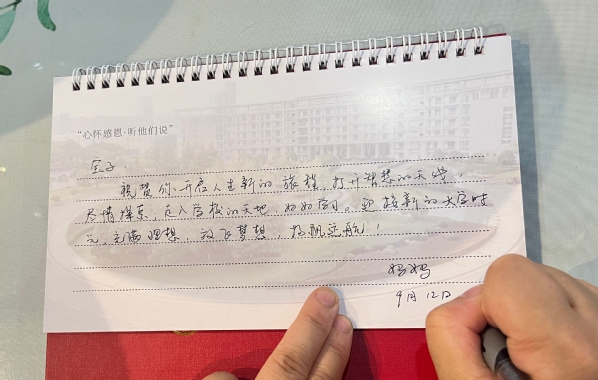 “心怀感恩·听他们说”
祝贺你开启人生新的旅程，打开梦想的天窗，
尽情探索，走入学校的天地，好好学习。迎接新的大学时
光，充满理想，放飞梦想，扬帆远航！
妈妈
9月12日